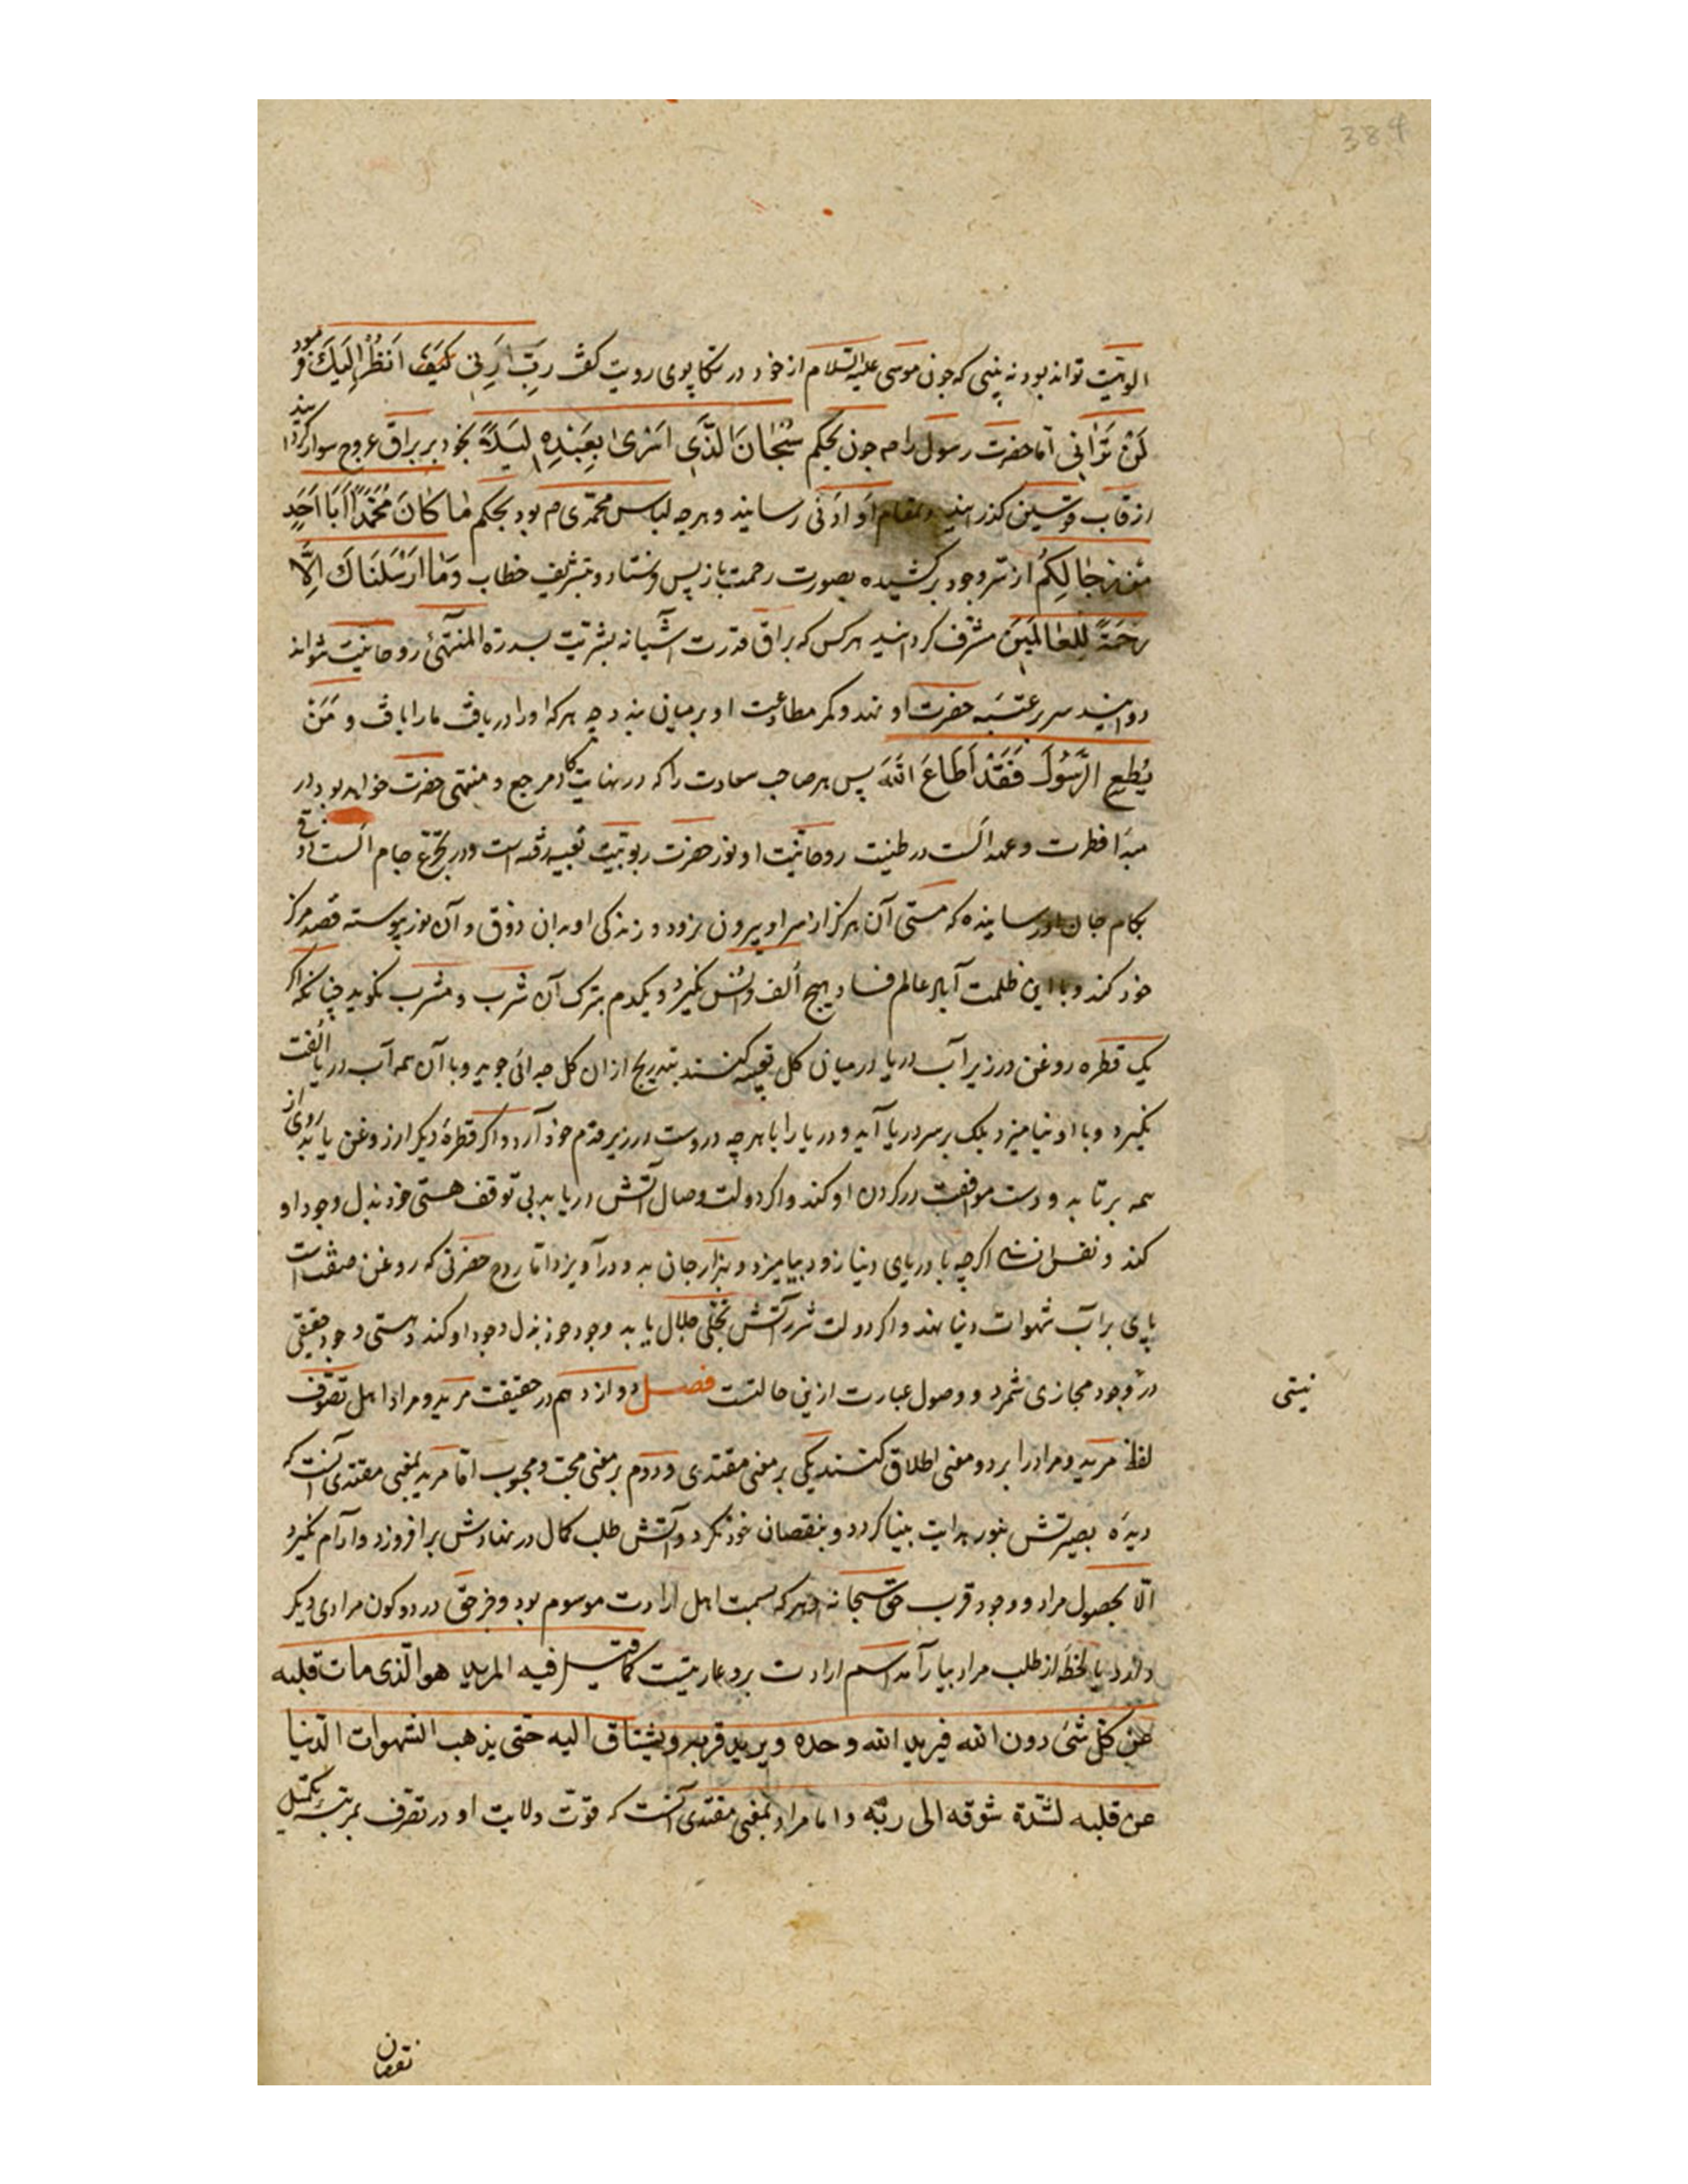 384
الوهیت تواند بود نه بینی که چون موسی علیه السلام از خود در تکاپوی رویت گفت رَبِّ اَرِنی کَیفَ اَنظُرْ اِلَیكَ فرمود
لَنْ تَرَانِی اما حضرت رسول را م چون بحکم سُبْحَانَ الَّذِی اَسْرَیٰ بِعَبْدِهِ لَیلَةً بخود بر براق عروج سوار گردانید
از قاب قوسین گذرانید و بمقام اَو اَدْنی رسانید و هرچه لباس محمدی م بود بحکم مَا کَانَ مُحَمَّدٌ اَبَا اَحَدٍ
مِنْ رِجَالِکُم از سر وجود برکشیده بصورت رحمت باز پس فرستاد و بتشریف خطاب وَمَا اَرْسَلنَاكَ اِلَّا
رَحْمَةً لِلعَالَمِینَ مشرف گردانید هر کس که براق قدرت آشیانه بشریت بسدرة المنتهیٰ روحانیت تواند
دوانید سر بر عتبه حضرت او نهد و کمر مطاوعت او بر میان بندد چه هر که او را دریافت ما را یافت و مَنْ
یُطِعِ الرَّسُولَ فَقَدْ اَطَاعَ اللهَ پس هر صاحب سعادت را که در نهایت کار مرجع و منتهی حضرت خواهد بود در
مبدأ فطرت و عهد الست در طینت روحانیت او نور حضرت ربوبیت تعبیه رفته است و در تجرّع جام الست ذوقی
بکام جان او رسانیده که مستی آن هرگز از سر او بیرون نرود و زندگی او بدان ذوق و آن نور پیوسته قصد مرکز
خود کند و با این ظلمت آباد عالم فساد هیچ اُلف و اُنس نگیرد و یکدم بترک آن شرب و مشرب نگوید چنانکه اگر
یک قطره روغن در زیر آب دریا در میان گل تعبیه کنند بتدریج از ان گل جدائی جوید و با آن همه آب دریا اُلفت
نگیرد و با او نیامیزد بلک بر سر دریا آید و دریا را با هرچه دروست در زیر قدم خود آرد و اگر قطرهٔ دیگر از روغن یابد روی از
همه برتابد و دست موافقت در گردن او کند و اگر دولت وصال آتش دریابد بی توقف هستی خود بذل وجود او
کند و نفس انسانی اگرچه با دریای دنیا زود بیامیزد و بهزار جان بدو درآویزد اما روح حضرتی که روغن صفتست
پای بر آب شهوات دنیا نهد و اگر دولت شرر آتش تجلی جلال یابد وجود خود بذل وجود او کند و هستی وجود حقیقی
در وجود مجازی شمرد و وصول عبارت ازین حالتست فصل دوازدهم در حقیقت مرید و مراد اهل تصوف
نیستی
لفظ مرید و مراد را بر دو معنی اطلاق کنند یکی بر معنی مقتدی و دوم بر معنی محب و محبوب اما مرید بمعنی مقتدی آنست که
دیدهٔ بصیرتش بنور هدایت بینا گردد و بنقصان خود نگرد و آتش طلب کمال در نهادش برافروزد و آرام نگیرد
الّا بحصول مراد و وجود قرب حق سبحانه و هر که بسمت اهل ارادت موسوم بود و جز حق در دو کون مرادی دیگر
دارد یا لحظهٔ از طلب مراد بیارآمد اسم ارادت برو عاریتست کما قیل فیه المرید هو الذی مات قلبه
عن کل شیٔ دون الله فیرید الله وحده ویرید قربه ویشتاق الیه حتی یذهب الشهوات الدنیا
عن قلبه لشدّة شوقه الی ربّه و اما مراد بمعنی مقتدی آنست که قوّت ولایت او در تصرف بمرتبهٔ تکمیل
نقصان